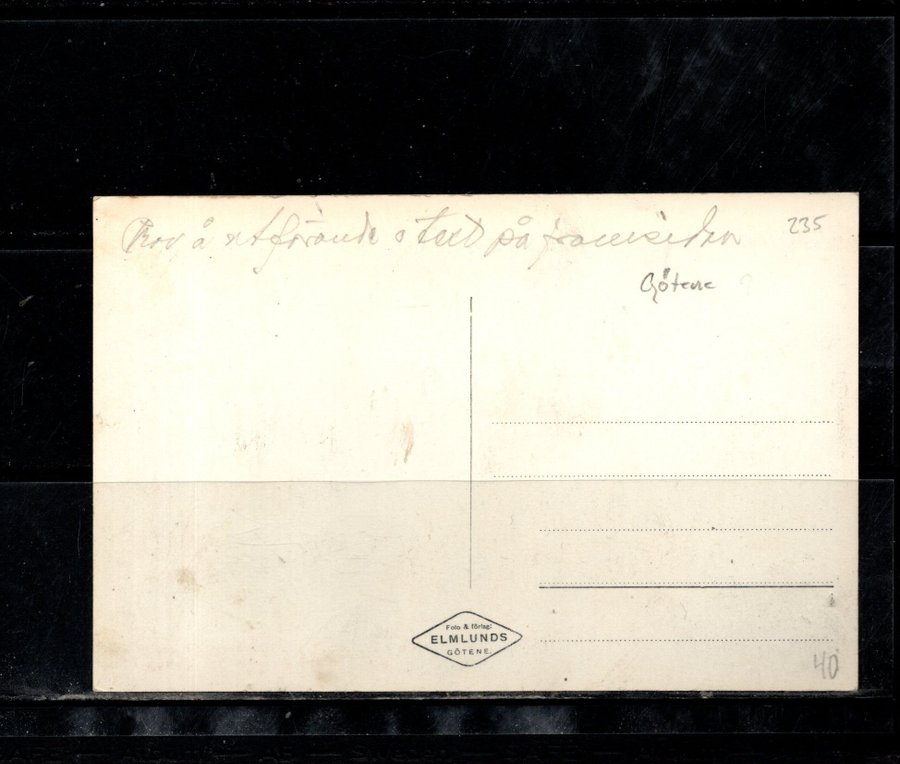 Prov å utförande o Text på framsidan
235
Götene
Foto & förlag:
ELMLUNDS
GÖTENE.
40